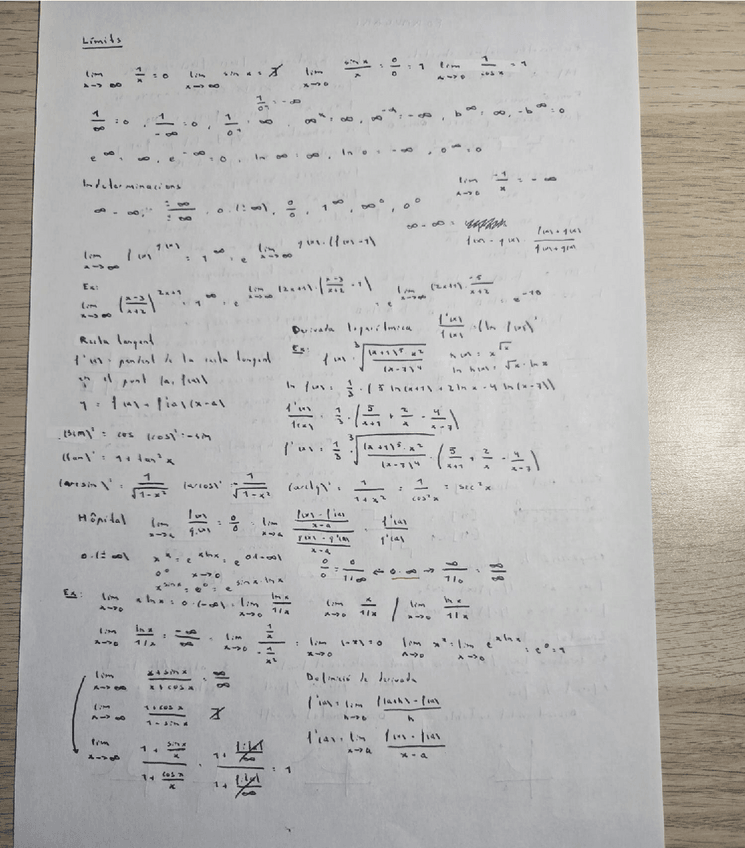 Límits
lim x→∞ 1/x = 0 lim x→∞ sin x = ∄ lim x→0 sin x/x = 0/0 = 1 lim x→0 1/cos x = 1
1/0⁻ = -∞
1/∞ = 0, 1/-∞ = 0, 1/0⁺ = ∞, b^∞ = ∞, -b^∞ = 0
e^∞ = ∞, e^-∞ = 0, ln ∞ = ∞, ln 0 = -∞, 0^∞ = 0
Indeterminacions lim x→0 -1/x = -∞
∞ - ∞, ±∞/±∞, 0·(±∞), 0/0, 1^∞, ∞⁰, 0⁰
∞ - ∞ = f(x) - g(x) · f(x)+g(x)/f(x)+g(x)
lim x→∞ f(x)^g(x) = 1^∞ = e^lim x→∞ g(x)·(f(x)-1)
Ex:
lim x→∞ (x-3/x+2)^2x+1 = 1^∞ = e^lim x→∞ (2x+1)·(x-3/x+2 - 1) = e^lim x→∞ (2x+1)·-5/x+2 = e^-10
Recta tangent
f'(a) = pendent de la recta tangent
en el punt (a, f(a))
y = f(a) + f'(a)(x-a)
(sin)' = cos (cos)' = -sin
(tan)' = 1 + tan²x
Derivada logarítmica f'(x)/f(x) = (ln f(x))'
Ex: f(x) = ³√((x+1)⁵·x²/(x-7)⁴) h(x) = x^√x
ln h(x) = √x · ln x
ln f(x) = 1/3 · (5 ln(x+1) + 2 ln x - 4 ln(x-7))
f'(x)/f(x) = 1/3 · (5/x+1 + 2/x - 4/x-7)
f'(x) = 1/3 · ³√((x+1)⁵·x²/(x-7)⁴) · (5/x+1 + 2/x - 4/x-7)
(arcsin)' = 1/√(1-x²) (arcos)' = -1/√(1-x²) (arctg)' = 1/1+x² = 1/cos²x = sec²x
Hôpital lim x→a f(x)/g(x) = 0/0 = lim x→a (f(x)-f(a)/x-a)/(g(x)-g(a)/x-a) = f'(a)/g'(a)
0·(±∞) x^x = e^x ln x = e^0·(-∞) 0/0 = 0/1/∞ ⇔ 0·∞ → ∞/1/0 = ∞/∞
0⁰ x→0
x^sin x = 0⁰ = e^sin x·ln x
Ex: lim x→0 x ln x = 0·(-∞) = lim x→0 ln x/1/x lim x→0 x/1/x / lim x→0 ln x/1/x
lim x→0 ln x/1/x = -∞/∞ = lim x→0 1/x/-1/x² = lim x→0 (-x) = 0 lim x→0 x^x = lim x→0 e^x ln x = e⁰ = 1
lim x→∞ x+sin x/x+cos x = ∞/∞
lim x→∞ 1+cos x/1-sin x ∄
lim x→∞ (1 + sin x/x)/(1 + cos x/x) = 1
Definició de derivada
f'(a) = lim h→0 f(a+h) - f(a)/h
f'(a) = lim x→a f(x) - f(a)/x-a